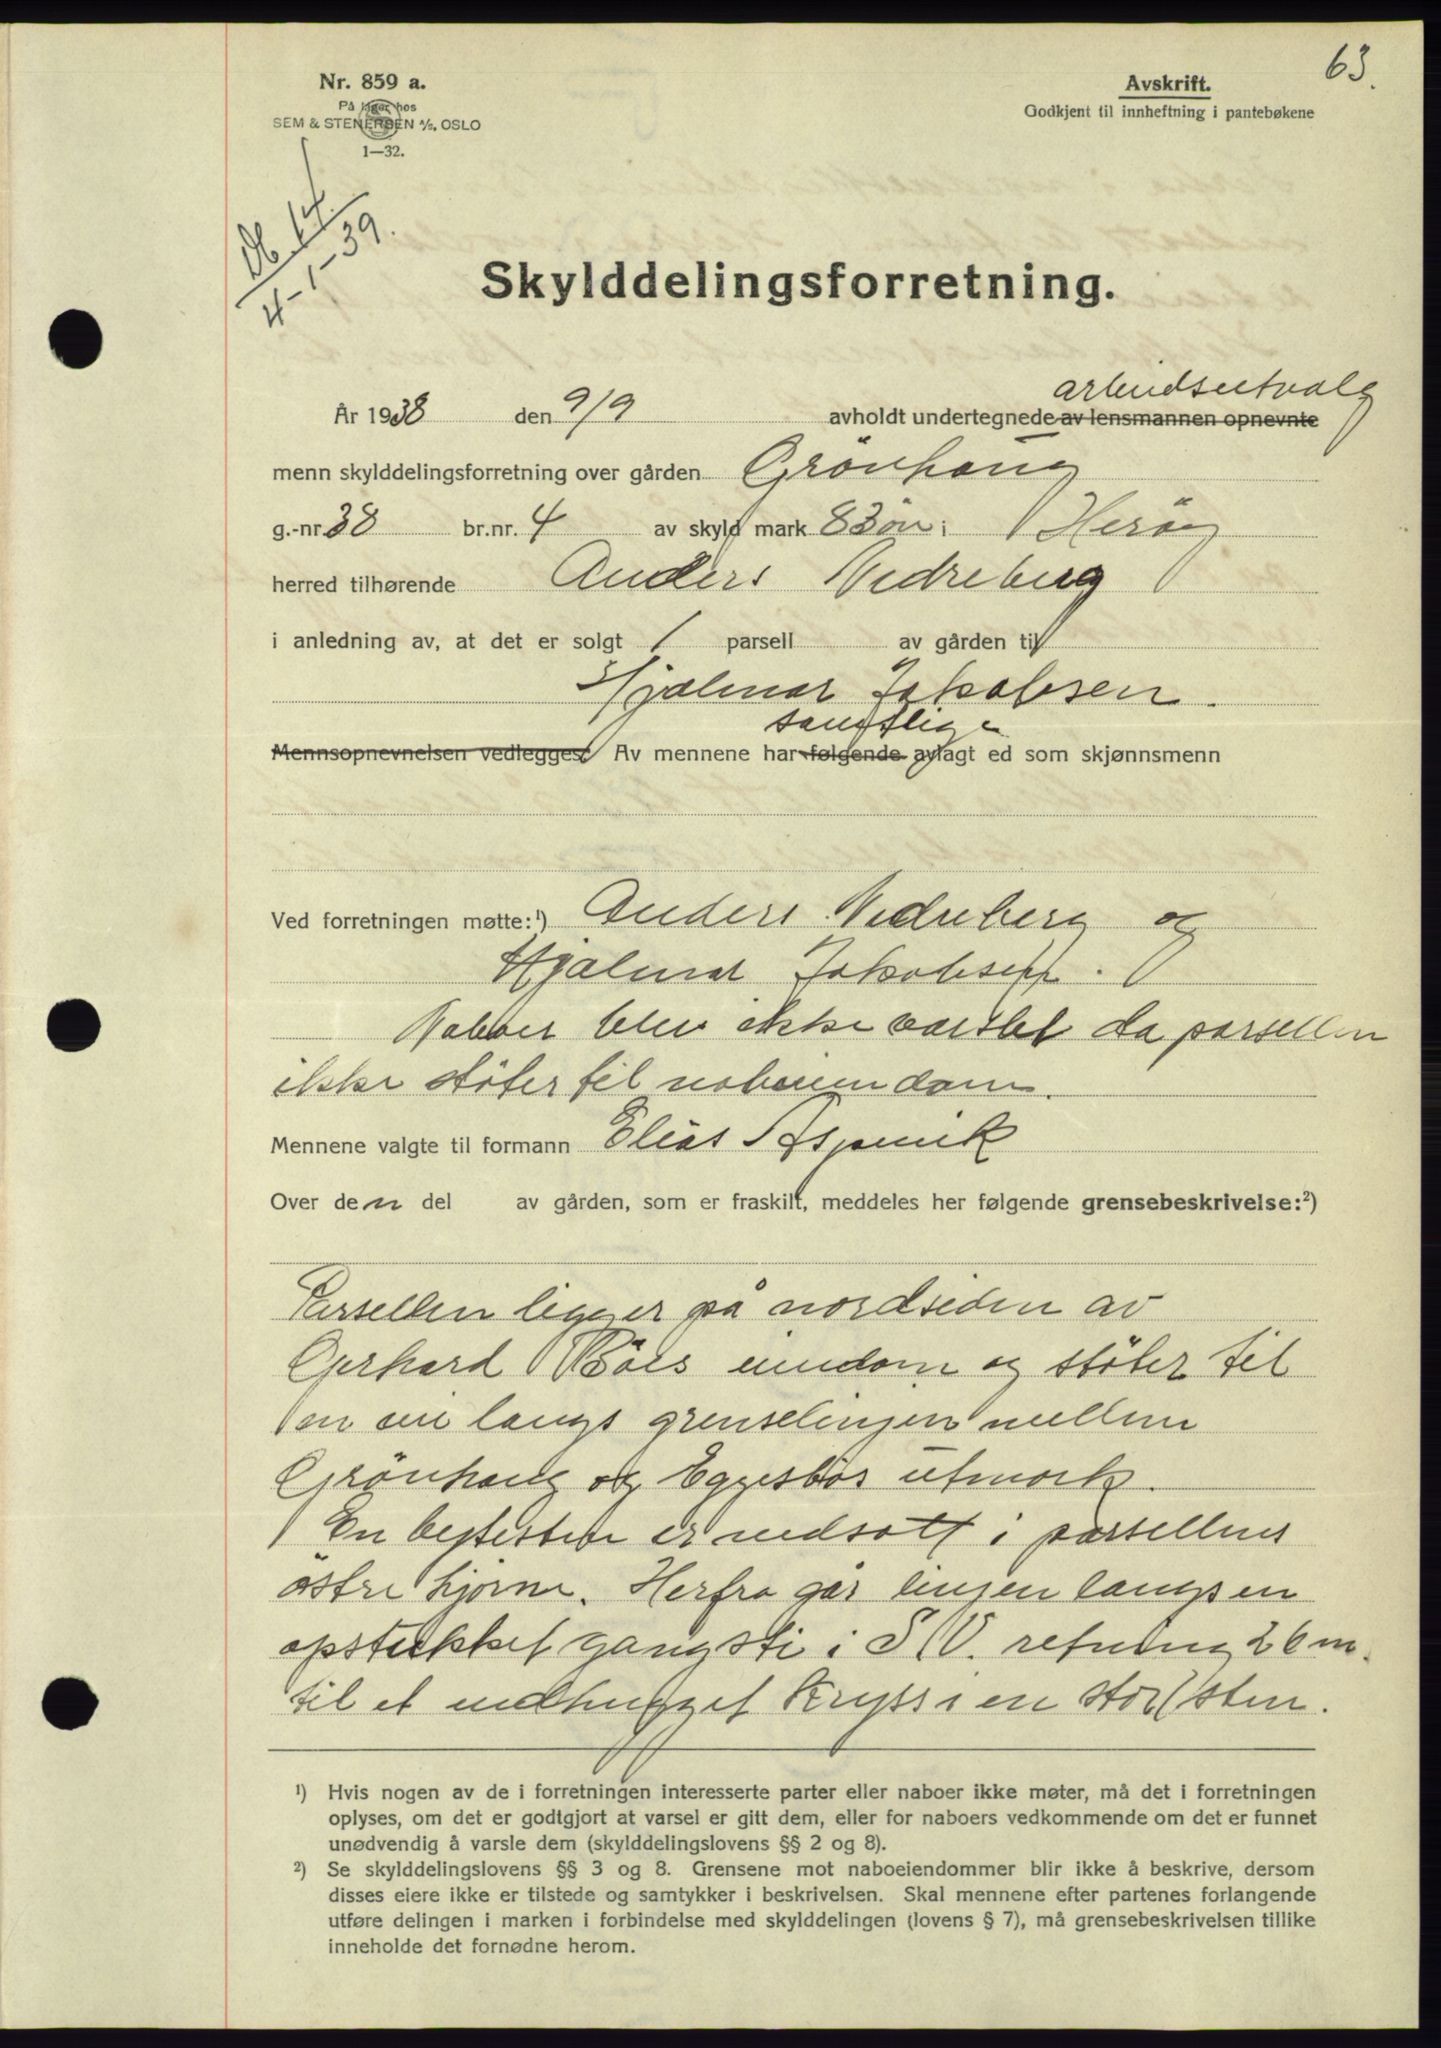 63.
Nr. 859 a.
På lager hos
SEM & STENERSEN A/S, OSLO
1—32.
Avskrift.
Godkjent til innheftning i pantebøkene
Db 14/
4-1-39.
Skylddelingsforretning.
arbeidsutvalg
År 1938 den 9/9 avholdt undertegnede av lensmannen opnevnte
menn skylddelingsforretning over gården Grönhaug
g.-nr. 38 br.nr. 4 av skyld mark 83 øre i Heröy
herred tilhørende Anders Nedreberg
i anledning av, at det er solgt 1 parsell av gården til
Hjalmar Jakobsen.
samtlige
Mennsopnevnelsen vedlegges. Av mennene har følgende avlagt ed som skjønnsmenn
Ved forretningen møtte:¹) Anders Nedreberg og
Hjalmar Jakobsen.
Naboer blev ikke varslet da parsellen
ikke støter til naboeiendom.
Mennene valgte til formann Elias Aspevik
Over den del av gården, som er fraskilt, meddeles her følgende grensebeskrivelse:²)
Parsellen ligger på nordsiden av
Gerhard Böes eiendom og støter til
en vei langs grenselinjen mellem
Grönhaug og Eggesbös utmark.
En bytesten er nedsatt i parsellens
östre hjörne. Herfra går linjen langs en
opstukket gangsti i S.V. retning 26 m.
til et nedhugget kryss i en stor sten.
¹) Hvis nogen av de i forretningen interesserte parter eller naboer ikke møter, må det i forretningen
oplyses, om det er godtgjort at varsel er gitt dem, eller for naboers vedkommende om det er funnet
unødvendig å varsle dem (skylddelingslovens §§ 2 og 8).
²) Se skylddelingslovens §§ 3 og 8. Grensene mot naboeiendommer blir ikke å beskrive, dersom
disses eiere ikke er tilstede og samtykker i beskrivelsen. Skal mennene efter partenes forlangende
utføre delingen i marken i forbindelse med skylddelingen (lovens § 7), må grensebeskrivelsen tillike
inneholde det fornødne herom.